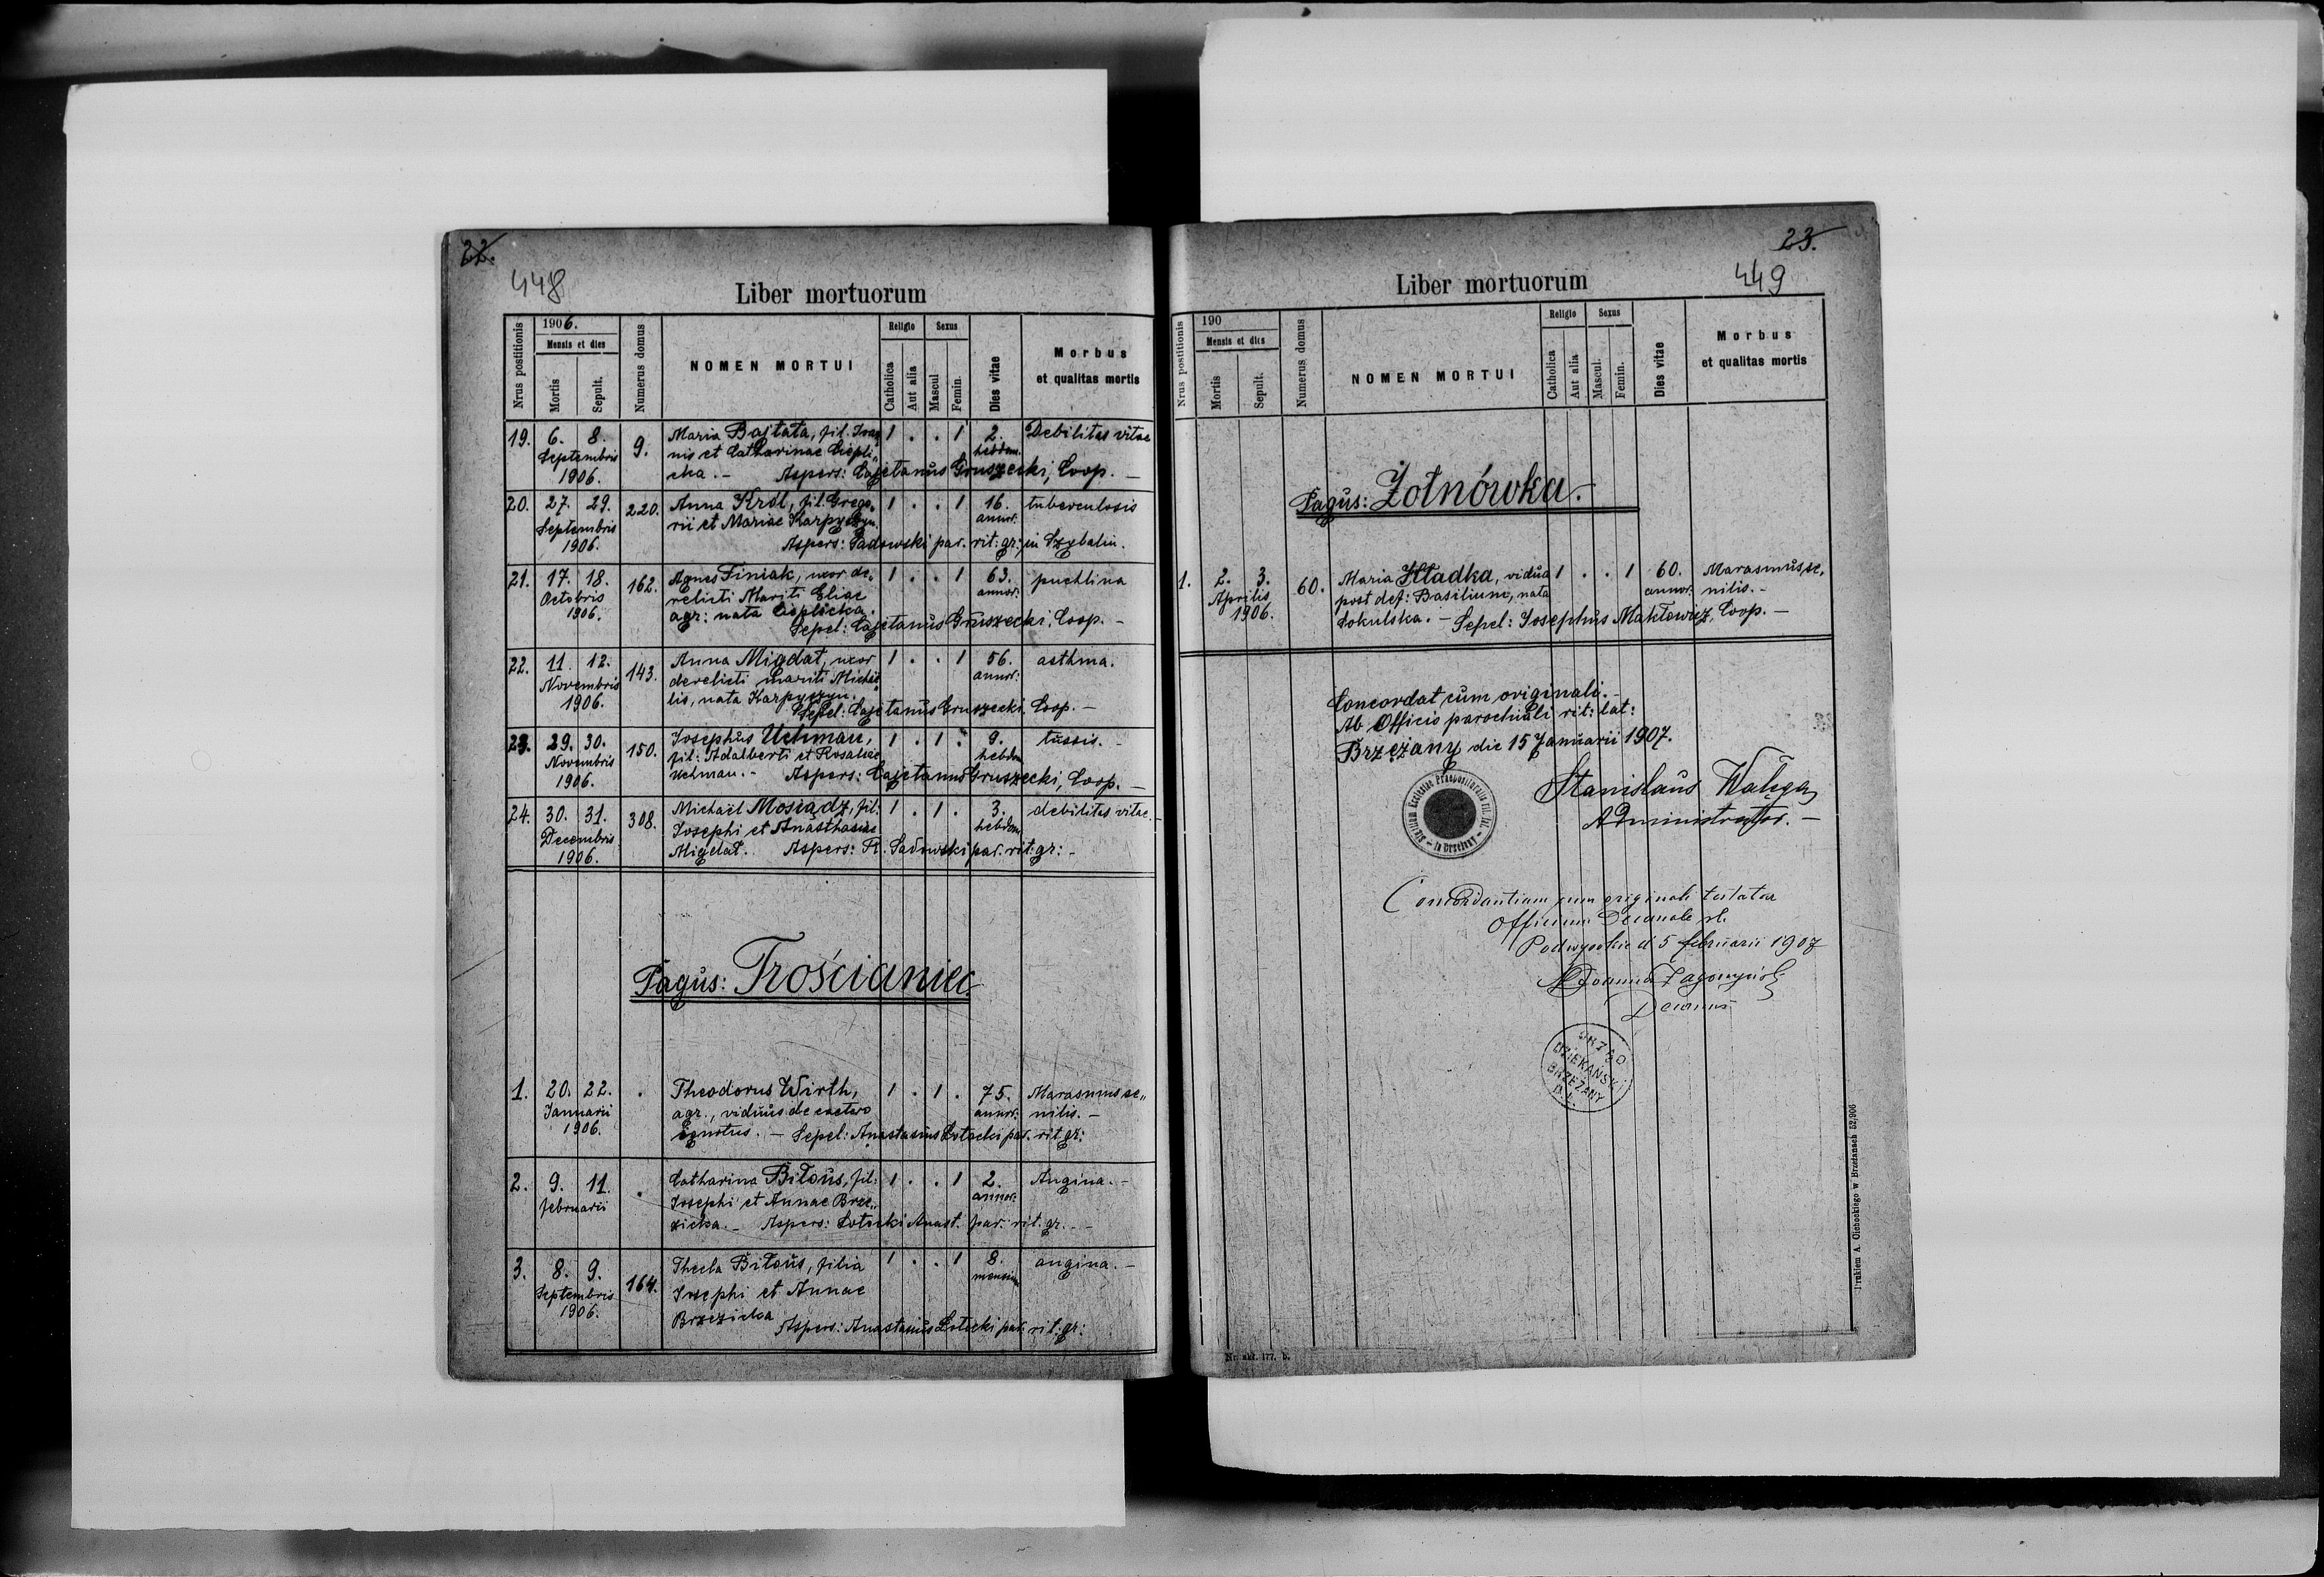 22.
448
Liber mortuorum
Nrus postitionis
1906.
Mensis et dies
Mortis
Sepult.
Numerus domus
NOMEN MORTUI
Religio
Catholica
Aut alia
Sexus
Mascul
Femin.
Dies vitae
Morbus
et qualitas mortis
19. 6. 8. 9. Maria Bajtała, fil. Joan 1 . . 1 2. Debilitas vitae
Septembris nis et Catharinae Ciepli„ hebdom.
1906. cka. - Aspers: Cajetanus Gruszecki, Coop. -
20. 27. 29. 220. Anna Król, fil. Grego„ 1 . . 1 16. tuberculosis
Septembris rii et Mariae Karpyszyn. annor.
1906. Aspers: Sadowski par. rit: gr: in Szybalin.
21. 17. 18. 162. Agnes Finiak, uxor de„ 1 . . 1 63. puchlina
Octobris relicti Mariti Eliae annor.
1906. agr: nata Cieplicka.
Sepel: Cajetanus Gruszecki, Coop. -
22. 11. 12. 143. Anna Migdał, uxor 1 . . 1 56. asthma.
Novembris derelicti mariti Michae„ annor:
1906. lis, nata Karpyszyn.
Sepel: Cajetanus Gruszecki. Coop. -
23. 29. 30. 150. Josephus Uchman, 1 . 1 . 9. tussis. -
Novembris fil: Adalberti et Rosaliae hebdom
1906. Uchman. - Aspers: Cajetanus Gruszecki, Coop. -
24. 30. 31. 308. Michaël Mosiądz, fil: 1 . 1 . 3. debilitas vitae. -
Decembris Josephi et Anasthasiae hebdom
1906. Migdał. Aspers: R. Sadowski par. rit: gr: -
Pagus: Trościaniec
1. 20. 22. . Theodorus Wirth, 1 . 1 . 75. Marasmus se„
Januarii agr., viduus de caetero annor: nilis. -
1906. ignotus. - Sepel: Anastasius Łotocki par. rit gr:
2. 9. 11. . Catharina Biłous, fil: 1 . . 1 2. Angina. -
februarii Josephi et Annae Brze„ annor:
zicka. - Aspers: Łotocki Anast. par. rit. gr. -
3. 8. 9. 164. Thecla Biłous, filia 1 . . 1 8. angina. -
Septembris Josephi et Annae mensium
1906. Brzezicka
Aspers: Anastasius Łotocki par. rit: gr:
23.
449
Liber mortuorum
Nrus postitionis
190
Mensis et dies
Mortis
Sepult.
Numerus domus
NOMEN MORTUI
Religio
Catholica
Aut alia
Sexus
Mascul.
Femin.
Dies vitae
Morbus
et qualitas mortis
Pagus: Żołnówka.
1. 2. 3. 60. Maria Hładka, vidua 1 . . 1 60. Marasmus se„
Aprilis post def: Basilium, nata annor. nilis. -
1906. Sokulska. - Sepel: Josephus Makłowicz, Coop. -
Concordat cum originali. -
Ab Officio parochiali rit: lat:
Brzeżany die 15 Januarii 1907.
Stanislaus Wałęga
Administrator. -
Concordantiam cum originali testatur
Officium Decanale r.l.
Podwysokie d 5 februarii 1907
Decanus
URZĄD
DZIEKAŃSKI
BRZEŻANY
Drukiem A. Cichockiego w Brzeżanach 52,906
Nr. akt. 177. b.